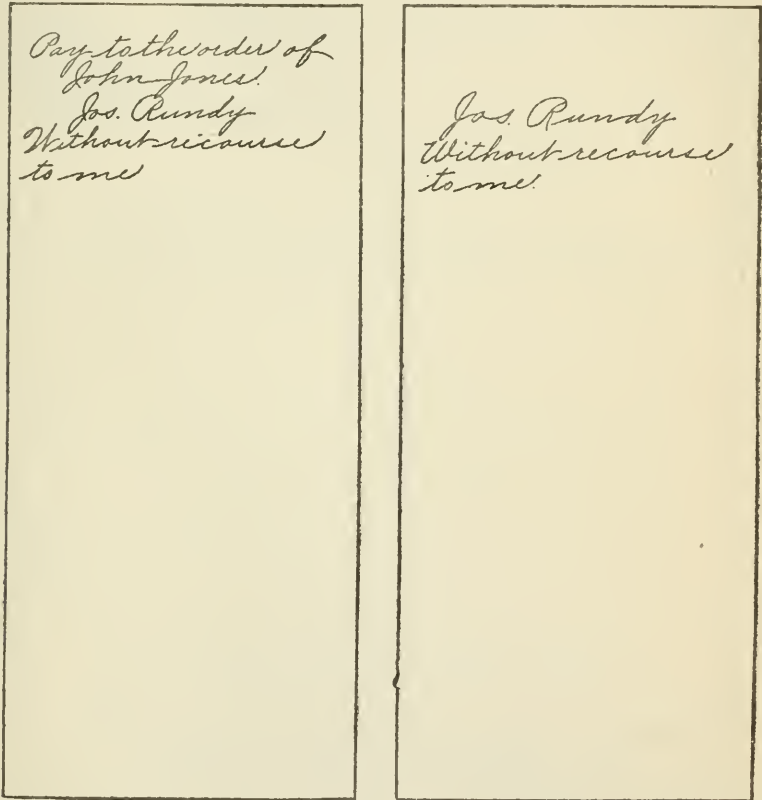 Pay to the order of
John Jones.
Jos. Rundy
Without recourse
to me
Jos. Rundy
Without recourse
to me.